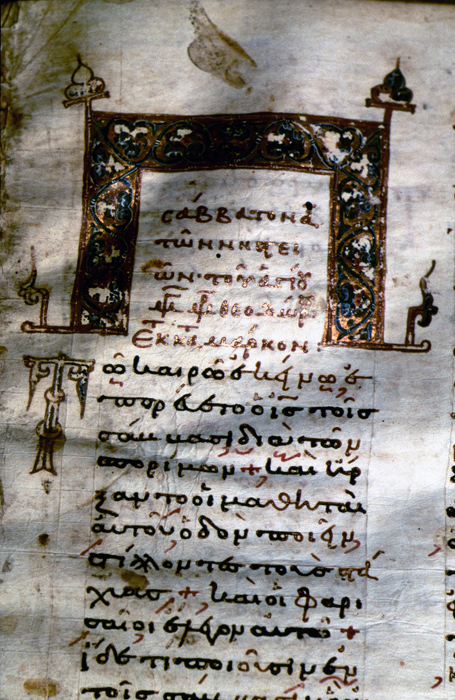 σάββατον α
τῶν νηστει
ῶν· τοῦ ἁγίου
θεοδώρ
Ἐκ μάρκον
Τῶ καιρῶ ἐκείνω ἐ
πορεύετο ὁ ις τοῖς
σάββασι διὰ τῶν
σπορίμων + καὶ ἤρ
ξαντο οἱ μαθηταὶ
αὐτοῦ ὁδὸν ποιεῖν
τίλλοντες τοὺς στά
χυας + καὶ οἱ φαρι
σαῖοι ἔλεγον αὐτῶ +
ἴδε τι ποιοῦσιν ἐν
τοῖς